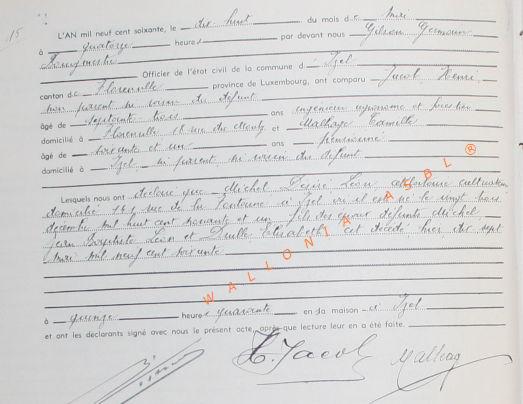 15
L'AN mil neuf cent soixante, le dix huit du mois de Mai
à quatorze heures par devant nous Gilson Germain
Bourgmestre
Officier de l'état civil de la commune d' Izel
canton de Florenville province de Luxembourg, ont comparu Jacob Henri,
non parent ni voisin du défunt
âgé de septante trois ans ingénieur agronome et forestier
domicilié à Florenville et Malhage Camille
âgé de soixante et un ans pensionné
domicilié à Izel, ni parent ni voisin du défunt
Lesquels nous ont déclaré que Michel Désiré Léon, célibataire cultivateur
domicilié 141, rue de la Fontaine à Izel où il est né le vingt trois
décembre mil huit cent nonante et un fils des époux défunts Michel,
Jean Baptiste Léon et Elisabeth, est décédé hier dix sept
mai mil neuf cent soixante
à quinze heures quarante en sa maison à Izel
et ont les déclarants signé avec nous le présent acte, après que lecture leur en a été faite.
H. Jacob Malhag
WALLONIA ASBL ®